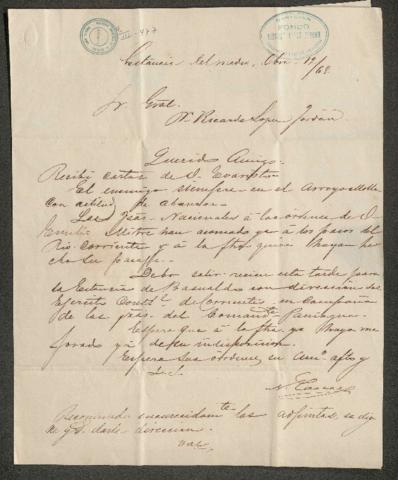 FONDO
Estancia del medio, Obre 19/68.
Sr Gral.
Dn Ricardo Lopez Jordán
Querido Amigo.
Recibí cartas de Dn Evaristo.
El enemigo siempre en el Arroyo
con de abandon
Las fzas Nacionales á las órdenes de D.
Emilio Mitre han asomado ya á los pasos del
Rio Corriente y á la fha quizá hayan he
cho su pasage.
Debo salir recien esta tarde para
la Estancia de Basualdo con direccion al
Ejército Constl de Corrientes en Compañia
de las fzas del Comandte Paniagua.
Espero que á la fha ya haya me
jorado ya de su indisposicion.
Espera sus órdenes, su Amo afto y
S.S.
Recomiendo encarecidamte las adjuntas, se dig
ne darle direccion.
Vale